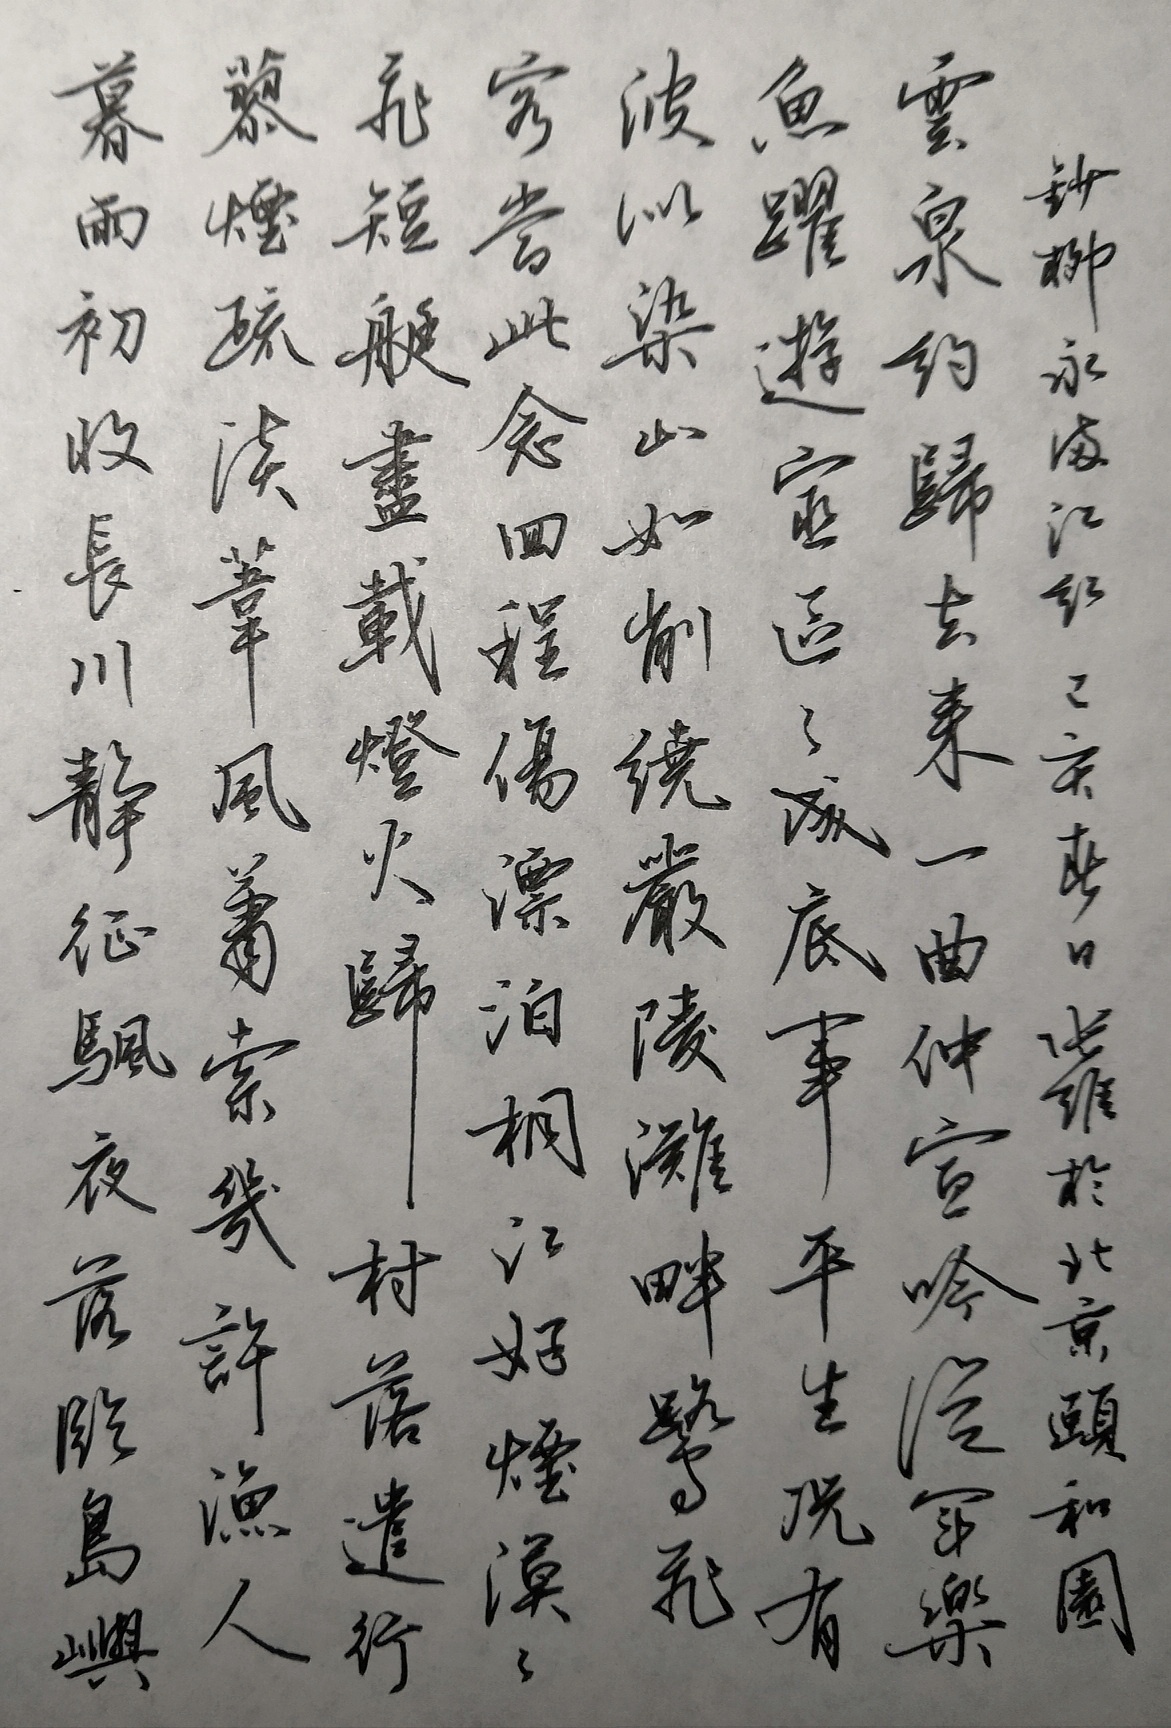 暮雨初收長川靜征颿夜落臨島嶼
蓼煙疏淡葦風蕭索幾許漁人
飛短艇盡載燈火歸村落遣行
客當此念回程傷漂泊桐江好煙漠〻
波似染山如削繞嚴陵灘畔鷺飛
魚躍遊宦區〻成底事平生況有
雲泉約歸去來一曲仲宣吟從軍樂
鈔柳永滿江紅 己亥春日 維於北京頤和園